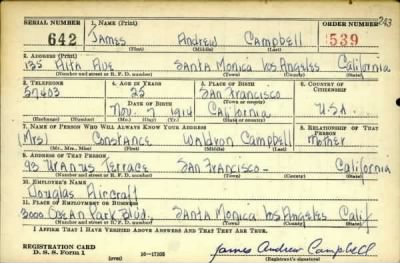 SERIAL NUMBER 1. NAME (Print) ORDER NUMBER
642 James Andrew Campbell 539
(First) (Middle) (Last)
2. ADDRESS (Print)
135 Alta Ave Santa Monica Los Angeles California
(Number and street or R. F. D. number) (Town) (County) (State)
3. TELEPHONE 4. AGE IN YEARS 5. PLACE OF BIRTH 6. COUNTRY OF CITIZENSHIP
57403 22 San Francisco
(Town or county)
DATE OF BIRTH
Nov. 7 1914 California U.S.A.
(Mo.) (Day) (Yr.) (State or country)
7. NAME OF PERSON WHO WILL ALWAYS KNOW YOUR ADDRESS 8. RELATIONSHIP OF THAT PERSON
(Mrs) Constance Waldron Campbell Mother
(Mr., Mrs., Miss) (First) (Middle) (Last)
9. ADDRESS OF THAT PERSON
93 Uranus Terrace San Francisco- California
(Number and street or R. F. D. number) (Town) (County) (State)
10. EMPLOYER'S NAME
Douglas Aircraft
11. PLACE OF EMPLOYMENT OR BUSINESS
3000 Ocean Park Blvd. Santa Monica Los Angeles Calif
(Number and street or R. F. D. number) (Town) (County) (State)
I AFFIRM THAT I HAVE VERIFIED ABOVE ANSWERS AND THAT THEY ARE TRUE.
REGISTRATION CARD
D. S. S. Form 1 (over) James Andrew Campbell
(Registrant's signature)